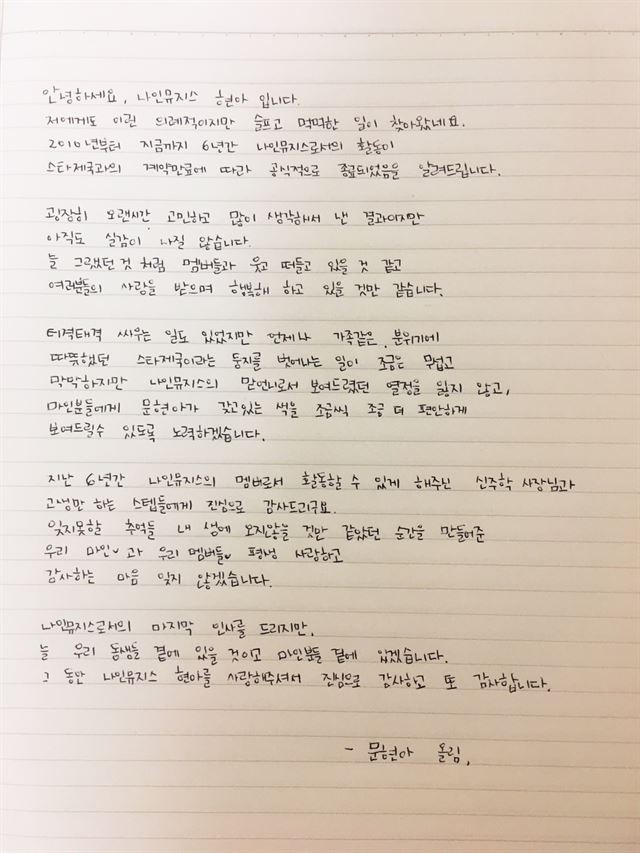 안녕하세요, 나인뮤지스 현아 입니다.
저에게도 이런 의례적이지만 슬프고 먹먹한 일이 찾아왔네요.
2010년부터 지금까지 6년간 나인뮤지스로서의 활동이
스타제국과의 계약만료에 따라 공식적으로 종료되었음을 알려드립니다.
굉장히 오랜시간 고민하고 많이 생각해서 낸 결과이지만
아직도 실감이 나질 않습니다.
늘 그랬던 것 처럼 멤버들과 웃고 떠들고 있을 것 같고
여러분들의 사랑을 받으며 행복해 하고 있을 것만 같습니다.
티격태격 싸우는 일도 있었지만 언제나 가족같은 분위기에
따뜻했던 스타제국이라는 둥지를 벗어나는 일이 조금은 무섭고
막막하지만 나인뮤지스의 맏언니로서 보여드렸던 열정을 잃지 않고,
마인분들에게 문현아가 갖고있는 색을 조금씩 조금 더 편안하게
보여드릴수 있도록 노력하겠습니다.
지난 6년간 나인뮤지스의 멤버로서 활동할 수 있게 해주신 신주학 사장님과
고생만 하는 스텝들에게 진심으로 감사드리구요.
잊지못할 추억들 내 생에 오지않을 것만 같았던 순간을 만들어준
우리 마인♥과 우리 멤버들♥ 평생 사랑하고
감사하는 마음 잊지 않겠습니다.
나인뮤지스로서의 마지막 인사를 드리지만,
늘 우리 동생들 곁에 있을 것이고 마인분들 곁에 있겠습니다.
그 동안 나인뮤지스 현아를 사랑해주셔서 진심으로 감사하고 또 감사합니다.
- 문현아 올림.